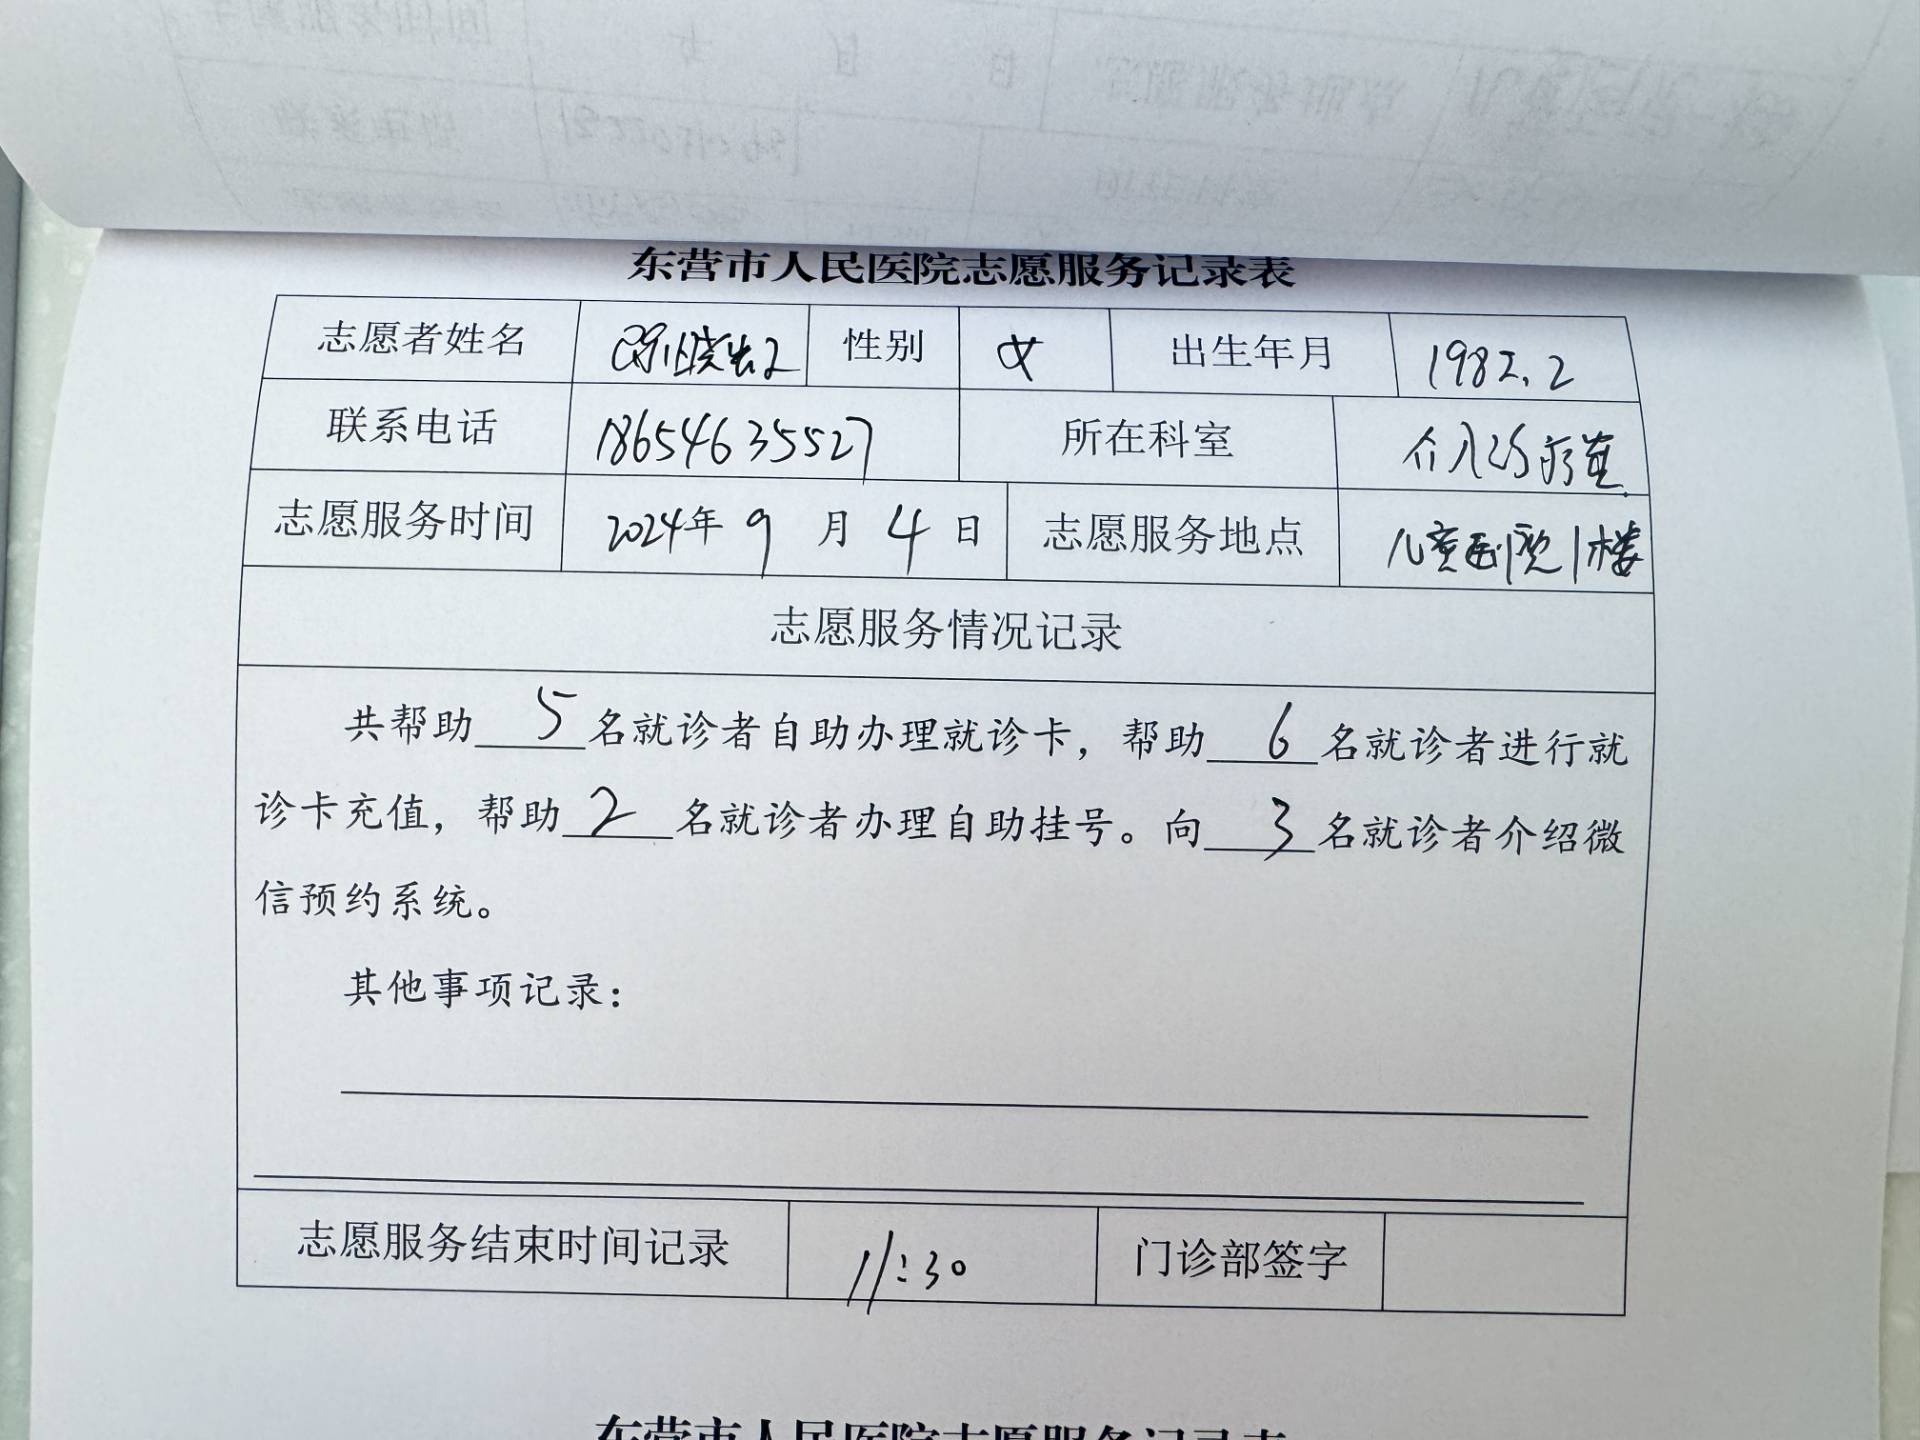 东营市人民医院志愿服务记录表
志愿者姓名 性别 女 出生年月 1982.2
联系电话 18654635527 所在科室 介入治疗室
志愿服务时间 2024年 9 月 4 日 志愿服务地点 儿童医院1楼
志愿服务情况记录
共帮助 5 名就诊者自助办理就诊卡，帮助 6 名就诊者进行就
诊卡充值，帮助 2 名就诊者办理自助挂号。向 3 名就诊者介绍微
信预约系统。
其他事项记录：
志愿服务结束时间记录 11:30 门诊部签字
东营市人民医院志愿服务记录表